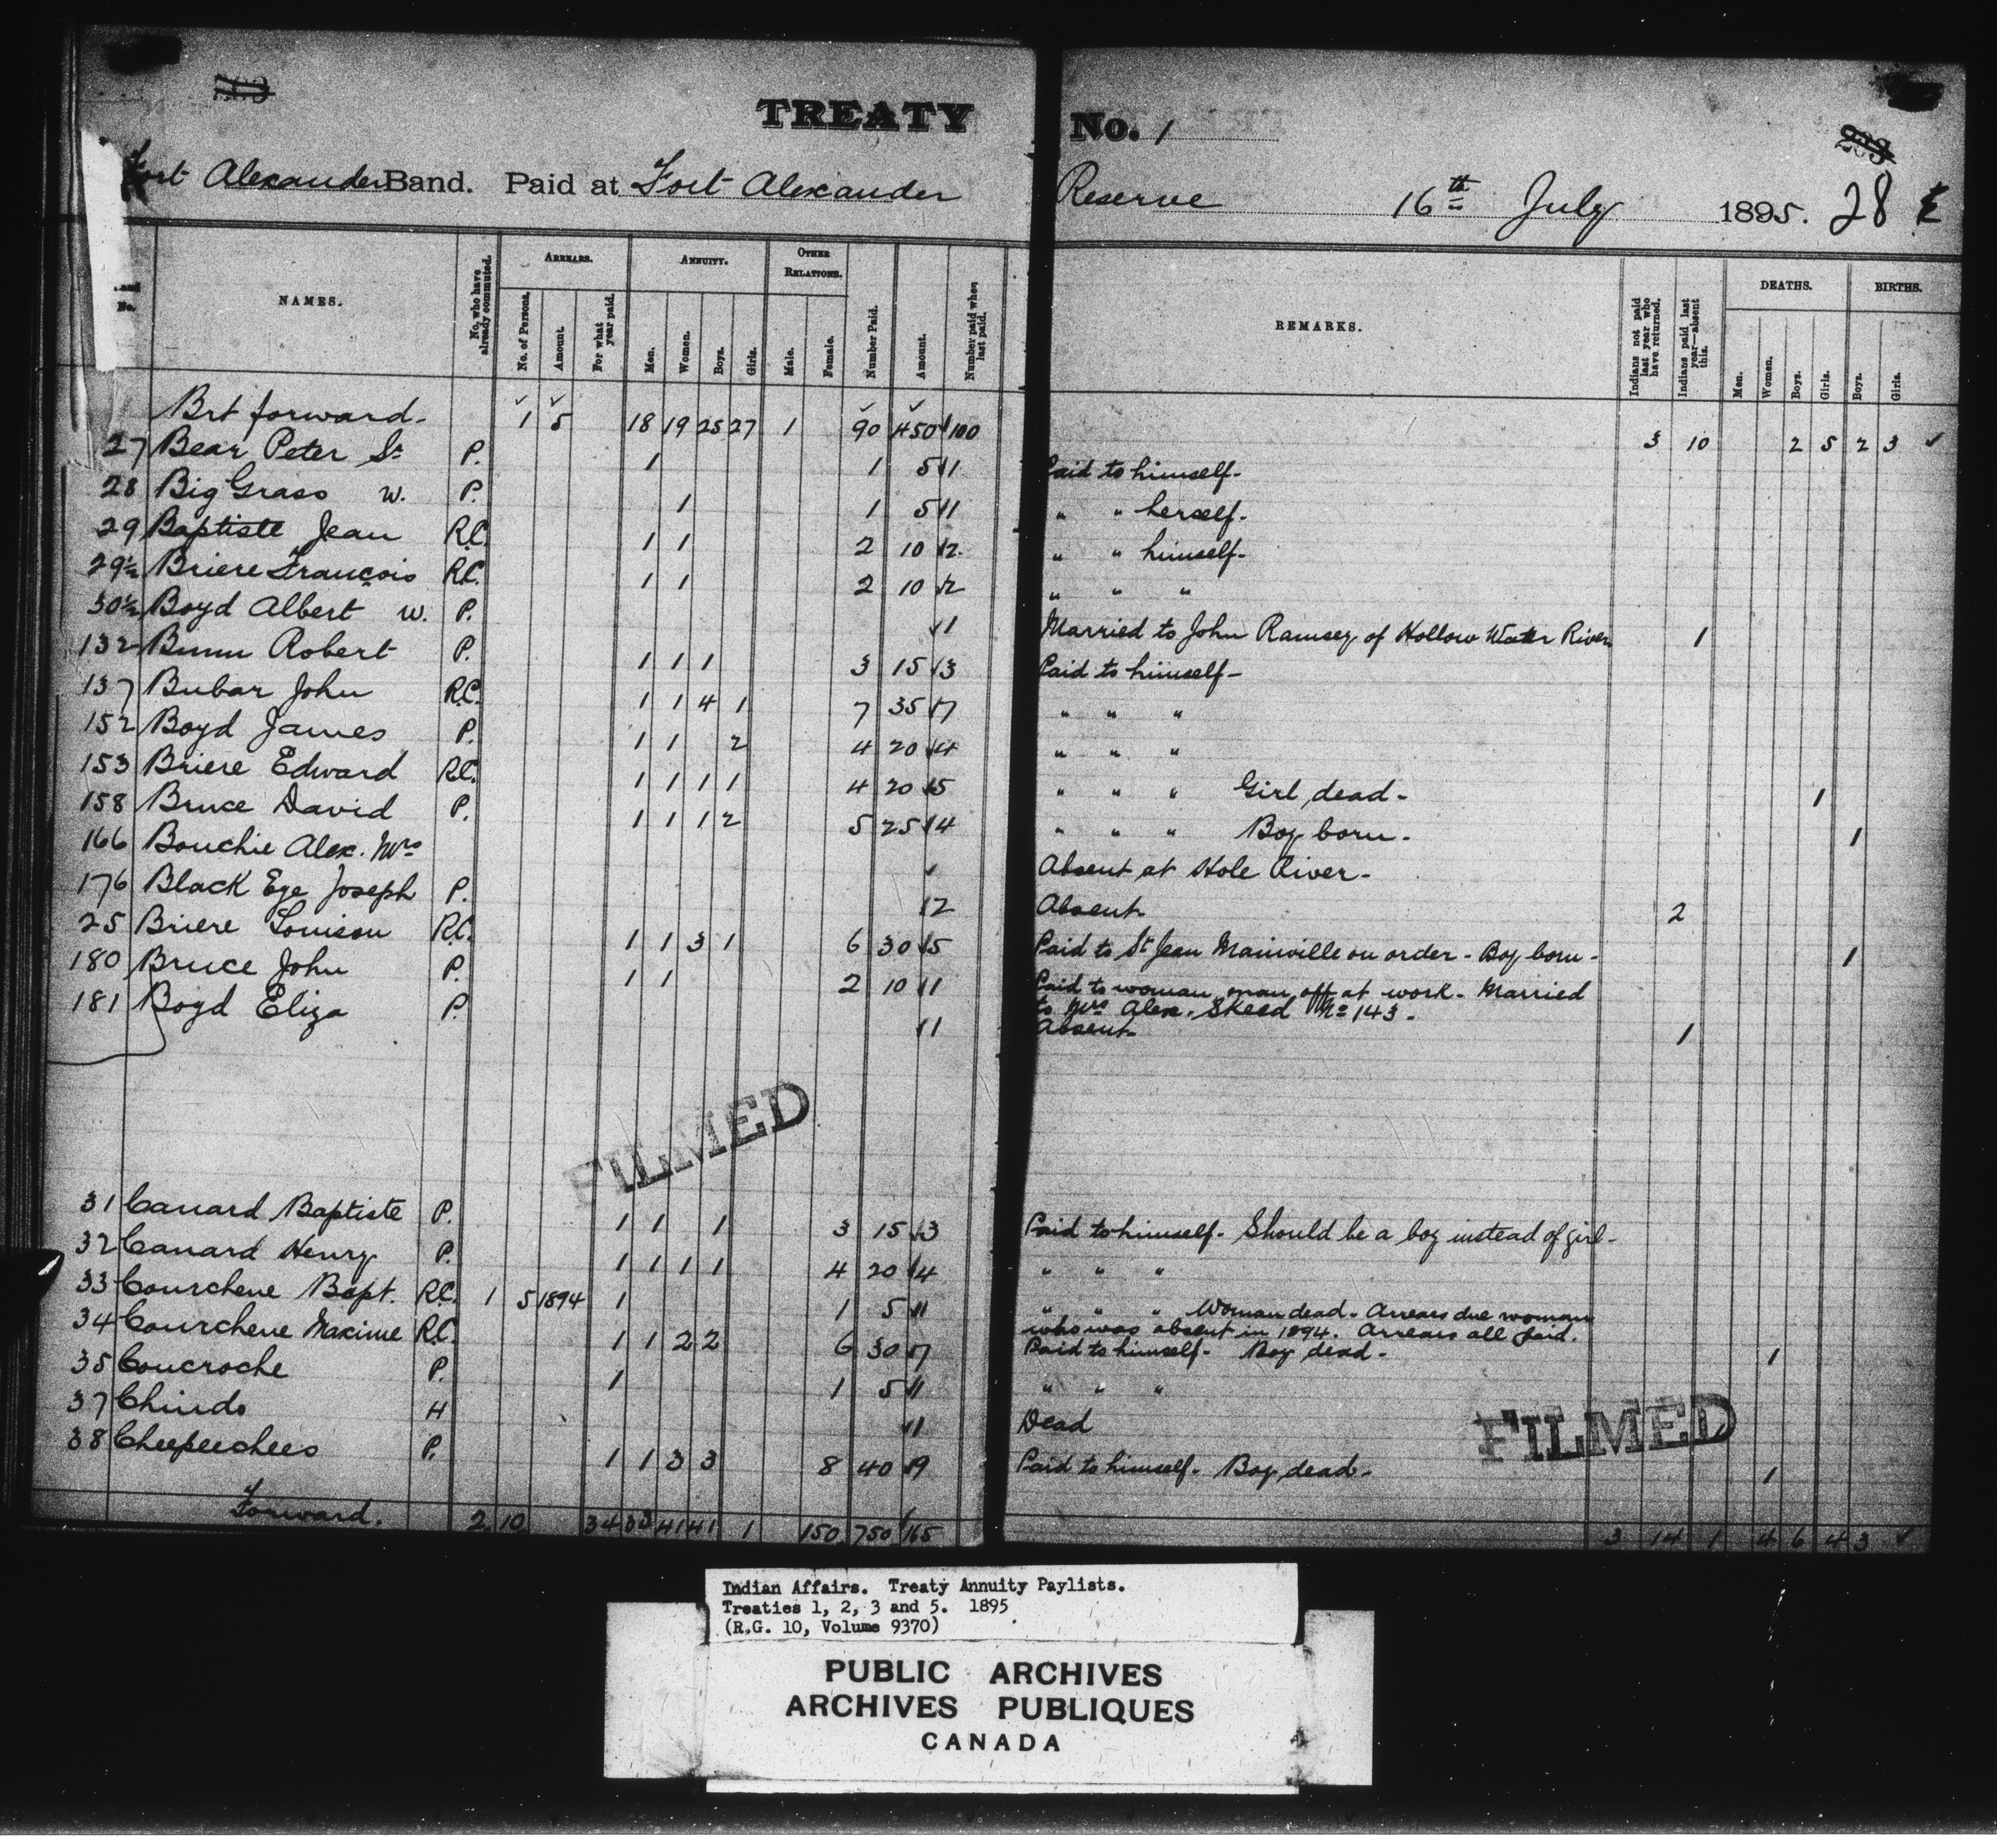 TREATY No. 1
Fort Alexander Band. Paid at Fort Alexander Reserve 16th July 1895. 28
NAMES. No. who have already commuted. ARREARS. ANNUITY. OTHER RELATIONS. Number Paid. Amount. Number paid when last paid. REMARKS. Indians not paid last year who have returned. Indians paid last year—absent this. DEATHS. BIRTHS.
No. No. of Persons. Amount. For what year paid. Men. Women. Boys. Girls. Male. Female. Men. Women. Boys. Girls. Boys. Girls.
Brt forward- 1 5 18 19 25 27 1 90 450 100 3 10 2 5 2 3 ✓
27 Bear Peter Sr P. 1 1 5 1 Paid to himself-
28 Big Grass w. P. 1 1 5 1 " " herself-
29 Baptiste Jean R.C. 1 1 2 10 2 " " himself-
29½ Briere François R.C. 1 1 2 10 2 " " "
30½ Boyd Albert w. P. 1 Married to John Ramsey of Hollow Water River 1
132 Bunn Robert P. 1 1 1 3 15 3 Paid to himself-
137 Bubar John R.C. 1 1 4 1 7 35 7 " " "
152 Boyd James P. 1 1 2 4 20 4 " " "
153 Briere Edward R.C. 1 1 1 1 4 20 5 " " " Girl dead- 1
158 Bruce David P. 1 1 1 2 5 25 4 " " " Boy born- 1
166 Bouchie Alex. Mrs ✓ Absent at Hole River-
176 Black Eye Joseph P. 2 Absent- 2
25 Briere Louison R.C. 1 1 3 1 6 30 5 Paid to St Jean Mainville on order - Boy born- 1
180 Bruce John P. 1 1 2 10 1 Paid to woman, man off at work- Married
to Mrs Alex. Skeed No 143-
181 Boyd Eliza P. 1 Absent- 1
FILMED
31 Canard Baptiste P. 1 1 1 3 15 3 Paid to himself- Should be a boy instead of girl-
32 Canard Henry P. 1 1 1 1 4 20 4 " " "
33 Courchene Bapt. R.C. 1 5 1894 1 1 5 1 " " " Woman dead- Arrears due woman
who was absent in 1894. Arrears all paid.
34 Courchene Maxime R.C. 1 1 2 2 6 30 7 Paid to himself- Boy dead- 1
35 Coucroche P. 1 1 5 1 " " "
37 Chindo H 1 Dead
38 Cheepeechees P. 1 1 3 3 8 40 9 Paid to himself- Boy dead- 1
FILMED
Forward. 2 10 34 33 41 41 1 150 750 165 3 14 1 4 6 4 3 ✓
Indian Affairs. Treaty Annuity Paylists.
Treaties 1, 2, 3 and 5. 1895
(R.G. 10, Volume 9370)
PUBLIC ARCHIVES
ARCHIVES PUBLIQUES
CANADA